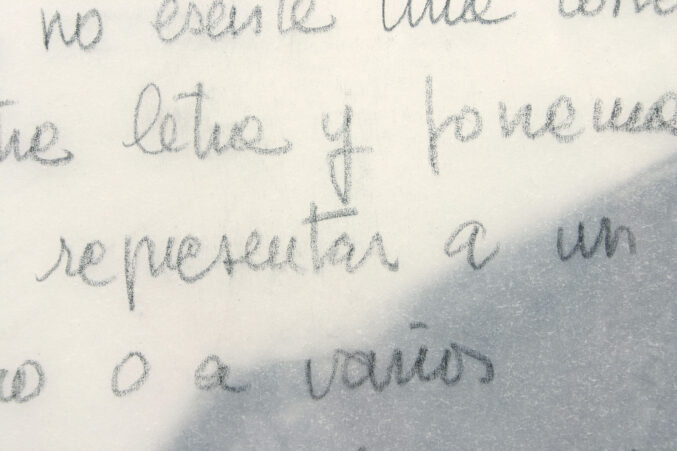 no existe una
letra y fonema
representar a un
o a varios